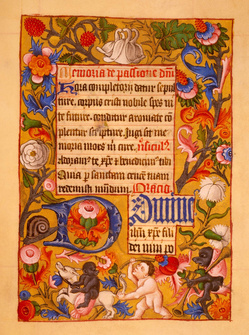 Memoria de passione dni
Hora completorij datur sepul
ture. corpus cristi nobile spes vi
te future. conditur aromate co
plentur scripture. Jugi sit me
moria mors in cure. 
Adoramus te xpe & benedicimus tibi
Quia p sanctam crucē tuam
redemisti mundum. Oracio
Domine
ihu xpe fili
dei vivi po